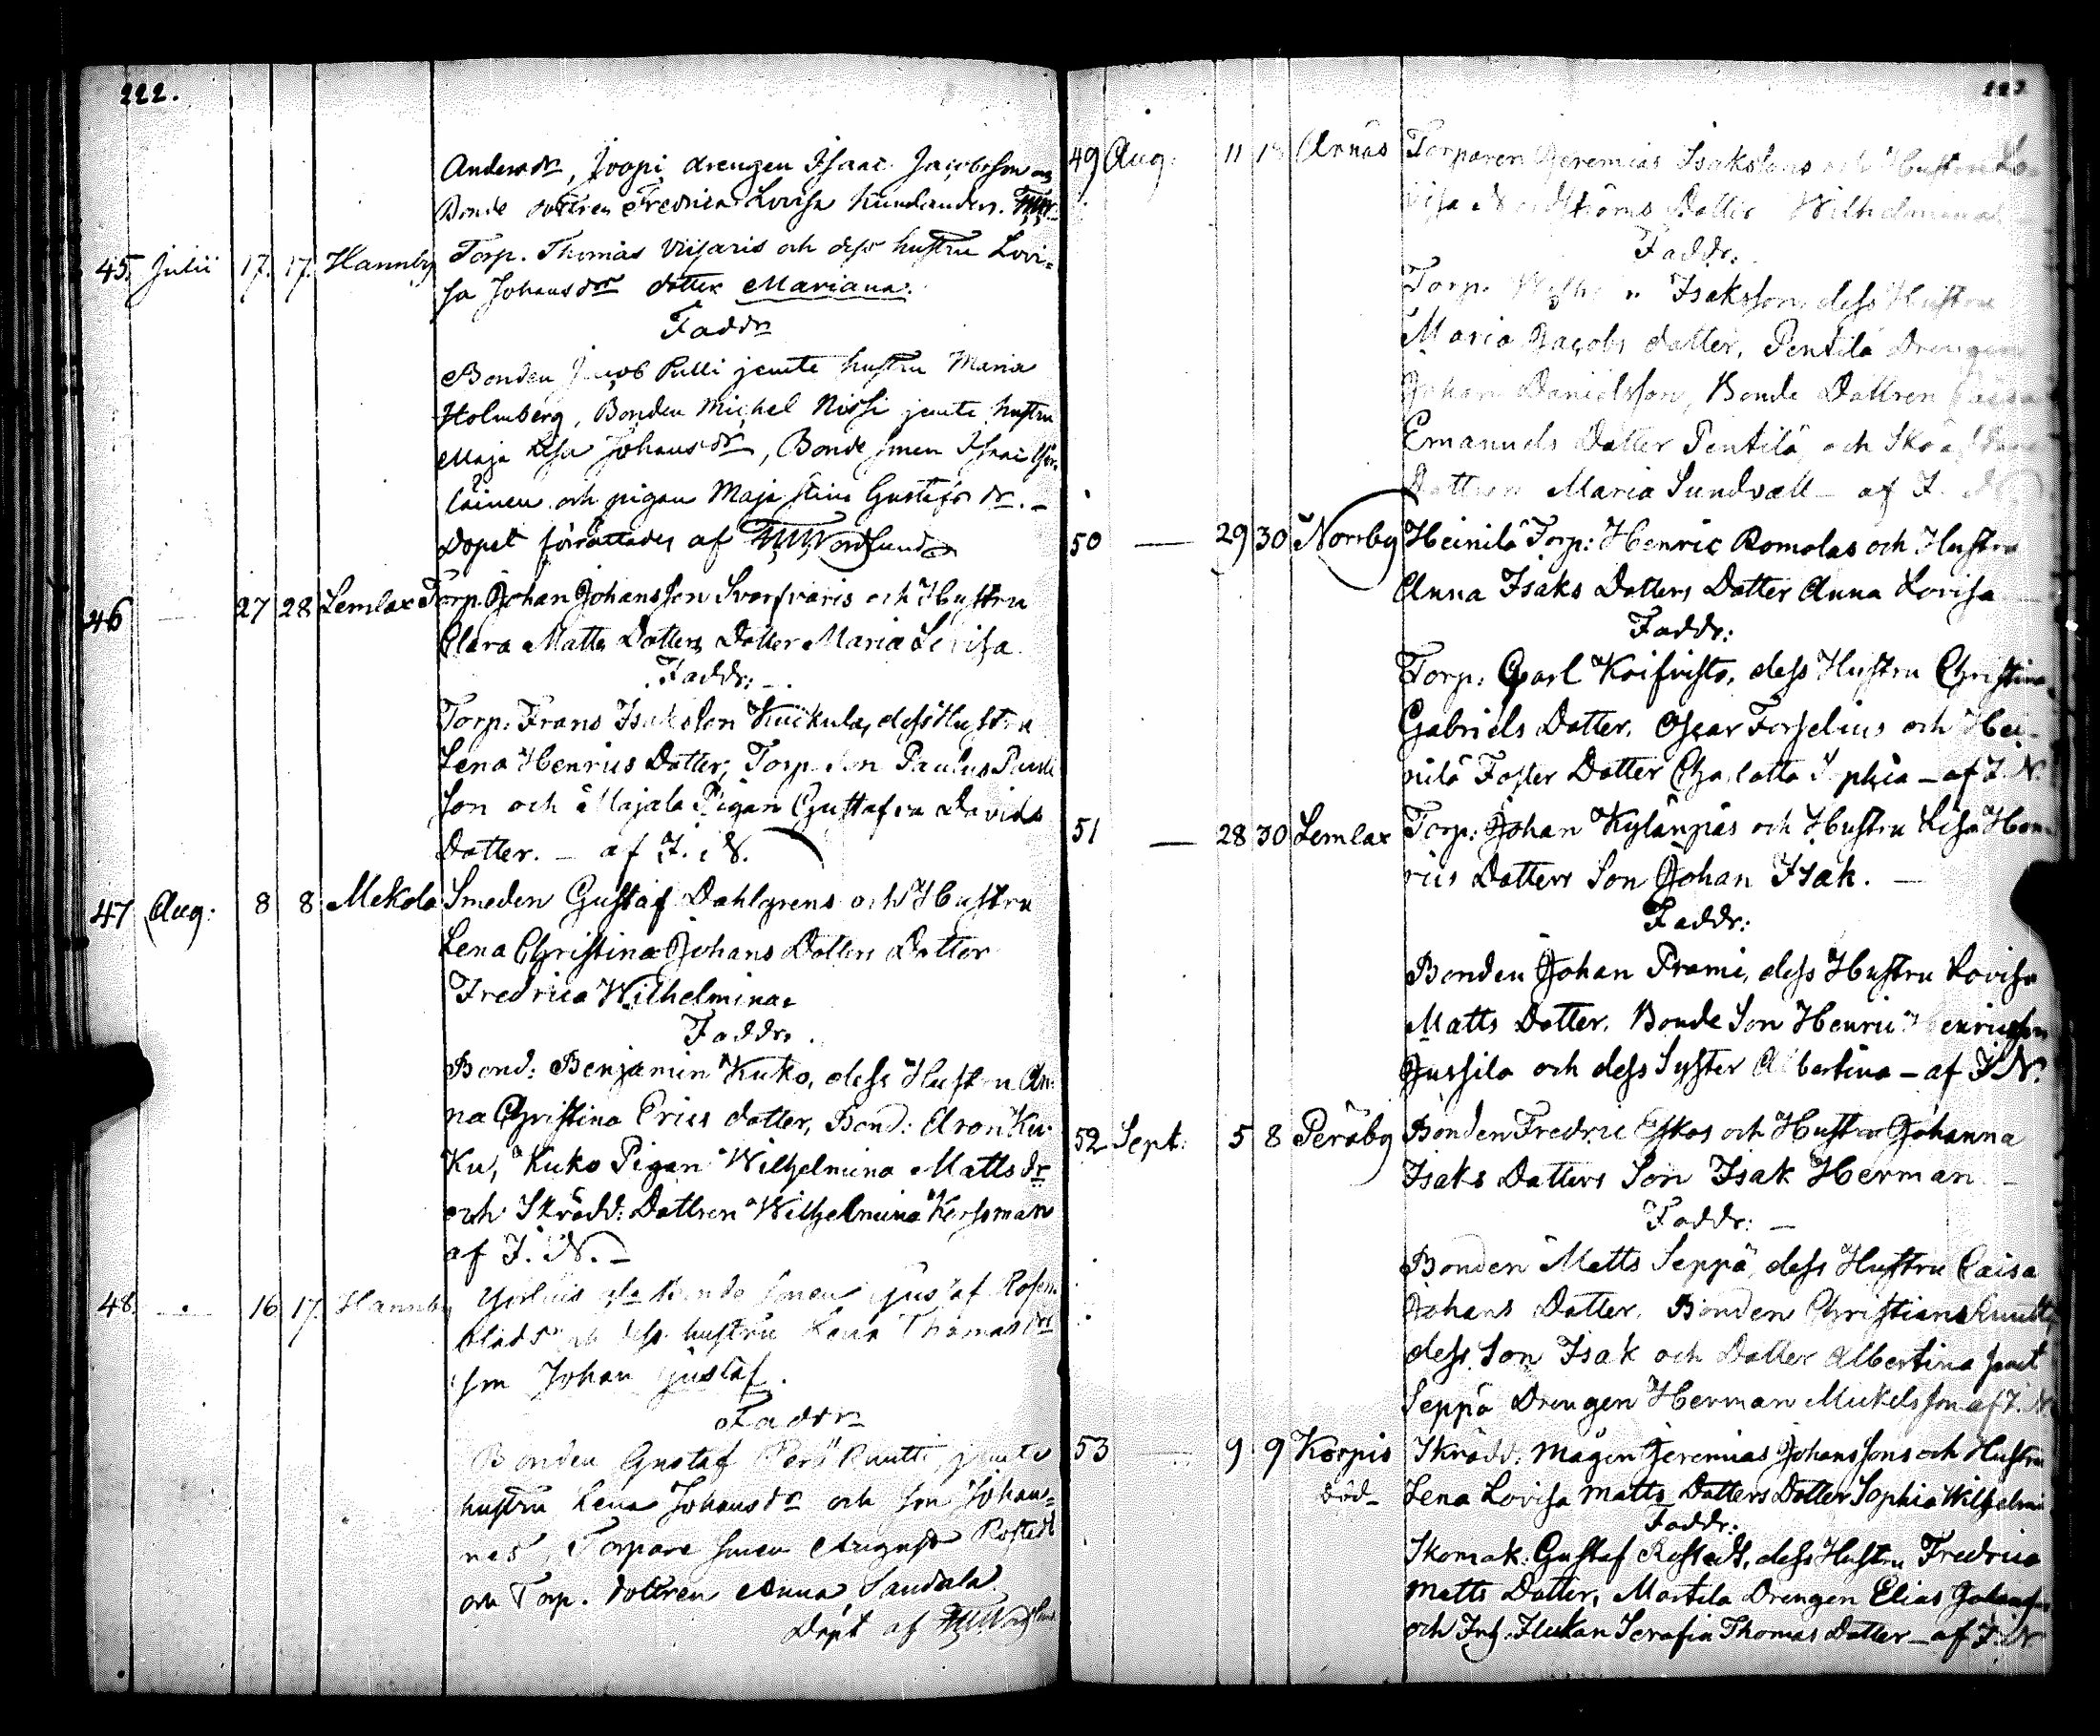 222.
Andersdr, Joopi drengen Isaac Jacobsson och
Bonde dottren Fredrica Lovisa
45. Julii 17. 17. Hannby Torp. Thomas och dess hustru Lovi=
sa Johansdr dotter Mariana.
Faddr
Bonden Jacob Pulli jemte hustru Maria
Holmberg, Bonden Michel Nissi jemte hustru
Maja Lisa Johansdr, Bonde sonen Isaac
läinen och pigan Maja Stina Gustafsdr. –
Döpet förrättades af Nordlund
46 — 27 28 Lemlax Torp. Johan Johansson Svartvaris och Hustru
Clara Matts Datters Datter Maria Lovisa
Faddr: –
Torp: Frans Isaksson Kuckula, dess Hustru
Lena Henrics Datter, Torp. Son Paulus
son och Majala Pigan Gustafva Davids
Datter. – af J. N.
47 Aug: 8 8 Mekola Smeden Gustaf Dahlgrens och Hustru
Lena Christina Johans Datters Datter
Fredrica Wilhelmina
Faddr.
Bond: Benjamin Kuko, dess Hustru An=
na Christina Erics datter, Bond: Aron Ku
Ku, Kuko Pigan Wilhelmina Matts dr
och Skrädd: Dattren Wilhelmina Kersman
af J. N. –
48. — 16 17. Hannby Bonde sonen Gustaf Rosen
blads och dess hustru Lena Thomas dr
son Johan Gustaf.
Faddr
Bonden Gustaf Perä Ruutti, jemte
hustru Lena Johansdr och son Johan=
nes, Torpare sonen August Rostedt
och Torp. dottren Anna Sandala
Döpt af Nordlund
49 Aug: 11 Arnäs Torparen Jeremias Isakssons och Hustru Lo
visa Nordströms Datter Wilhelmina
Faddr:
Torp. Isaksson dess Hustru
Maria Jacobs datter, Pentilä Drengen
Johan Danielsson, Bonde Dattren Caisa
Emanuels Datter Pentilä och
Dattren Maria Sundvall – af J. N.
50 — 29 30 Norrby Heinilä Torp: Henric Romolas och Hustru
Anna Isaks Datters Datter Anna Lovisa
Faddr:
Torp: Carl Koifvisto, dess Hustru Christina
Gabriels Datter, Oscar Forselius och Hei=
nilä Foster Datter Charlotta Sophia – af J. N.
51 — 28 30 Lemlax Torp: Johan Kylänpäs och Hustru Lisa Hen=
rics Datters Son Johan Isak. –
Faddr:
Bonden Johan Prami, dess Hustru Lovisa
Matts Datter, Bonde Son Henric Henricsson
Jussila och dess Syster Albertina – af J N.
52 Sept: 5 8 Peräby Bonden Fredric Eskos och Hustru Johanna
Isaks Datters Son Isak Herman –
Faddr: –
Bonden Matts Seppä, dess Hustru Caisa
Johans Datter, Bonden Christian
dess Son Isak och Datter Albertina samt
Seppä Drengen Herman Mickelsson af J. N.
53 — 9 9 Korpis Skrädd: Mågen Jeremias Johanssons och Hustru
död – Lena Lovisa Matts Datters Datter Sophia Wilhelmi
Faddr:
Skomak: Gustaf Rostedt, dess Hustru Fredrica
Matts Datter, Martila Drengen Elias
och Inh. Flickan Serafia Thomas Datter – af J. N